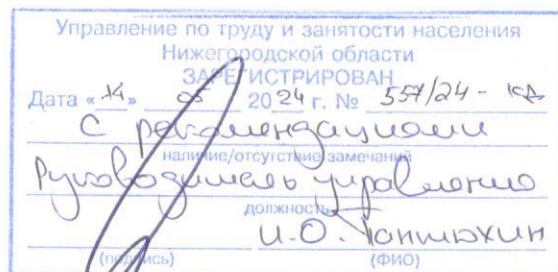 Управление по труду и занятости населения
Нижегородской области
ЗАРЕГИСТРИРОВАН
Дата «14» 05 2024 г. № 557/24 - КД
С рекомендациями
наличие/отсутствие замечаний
Руководитель управления
должность
И.О. Пантюхин
(подпись) (ФИО)